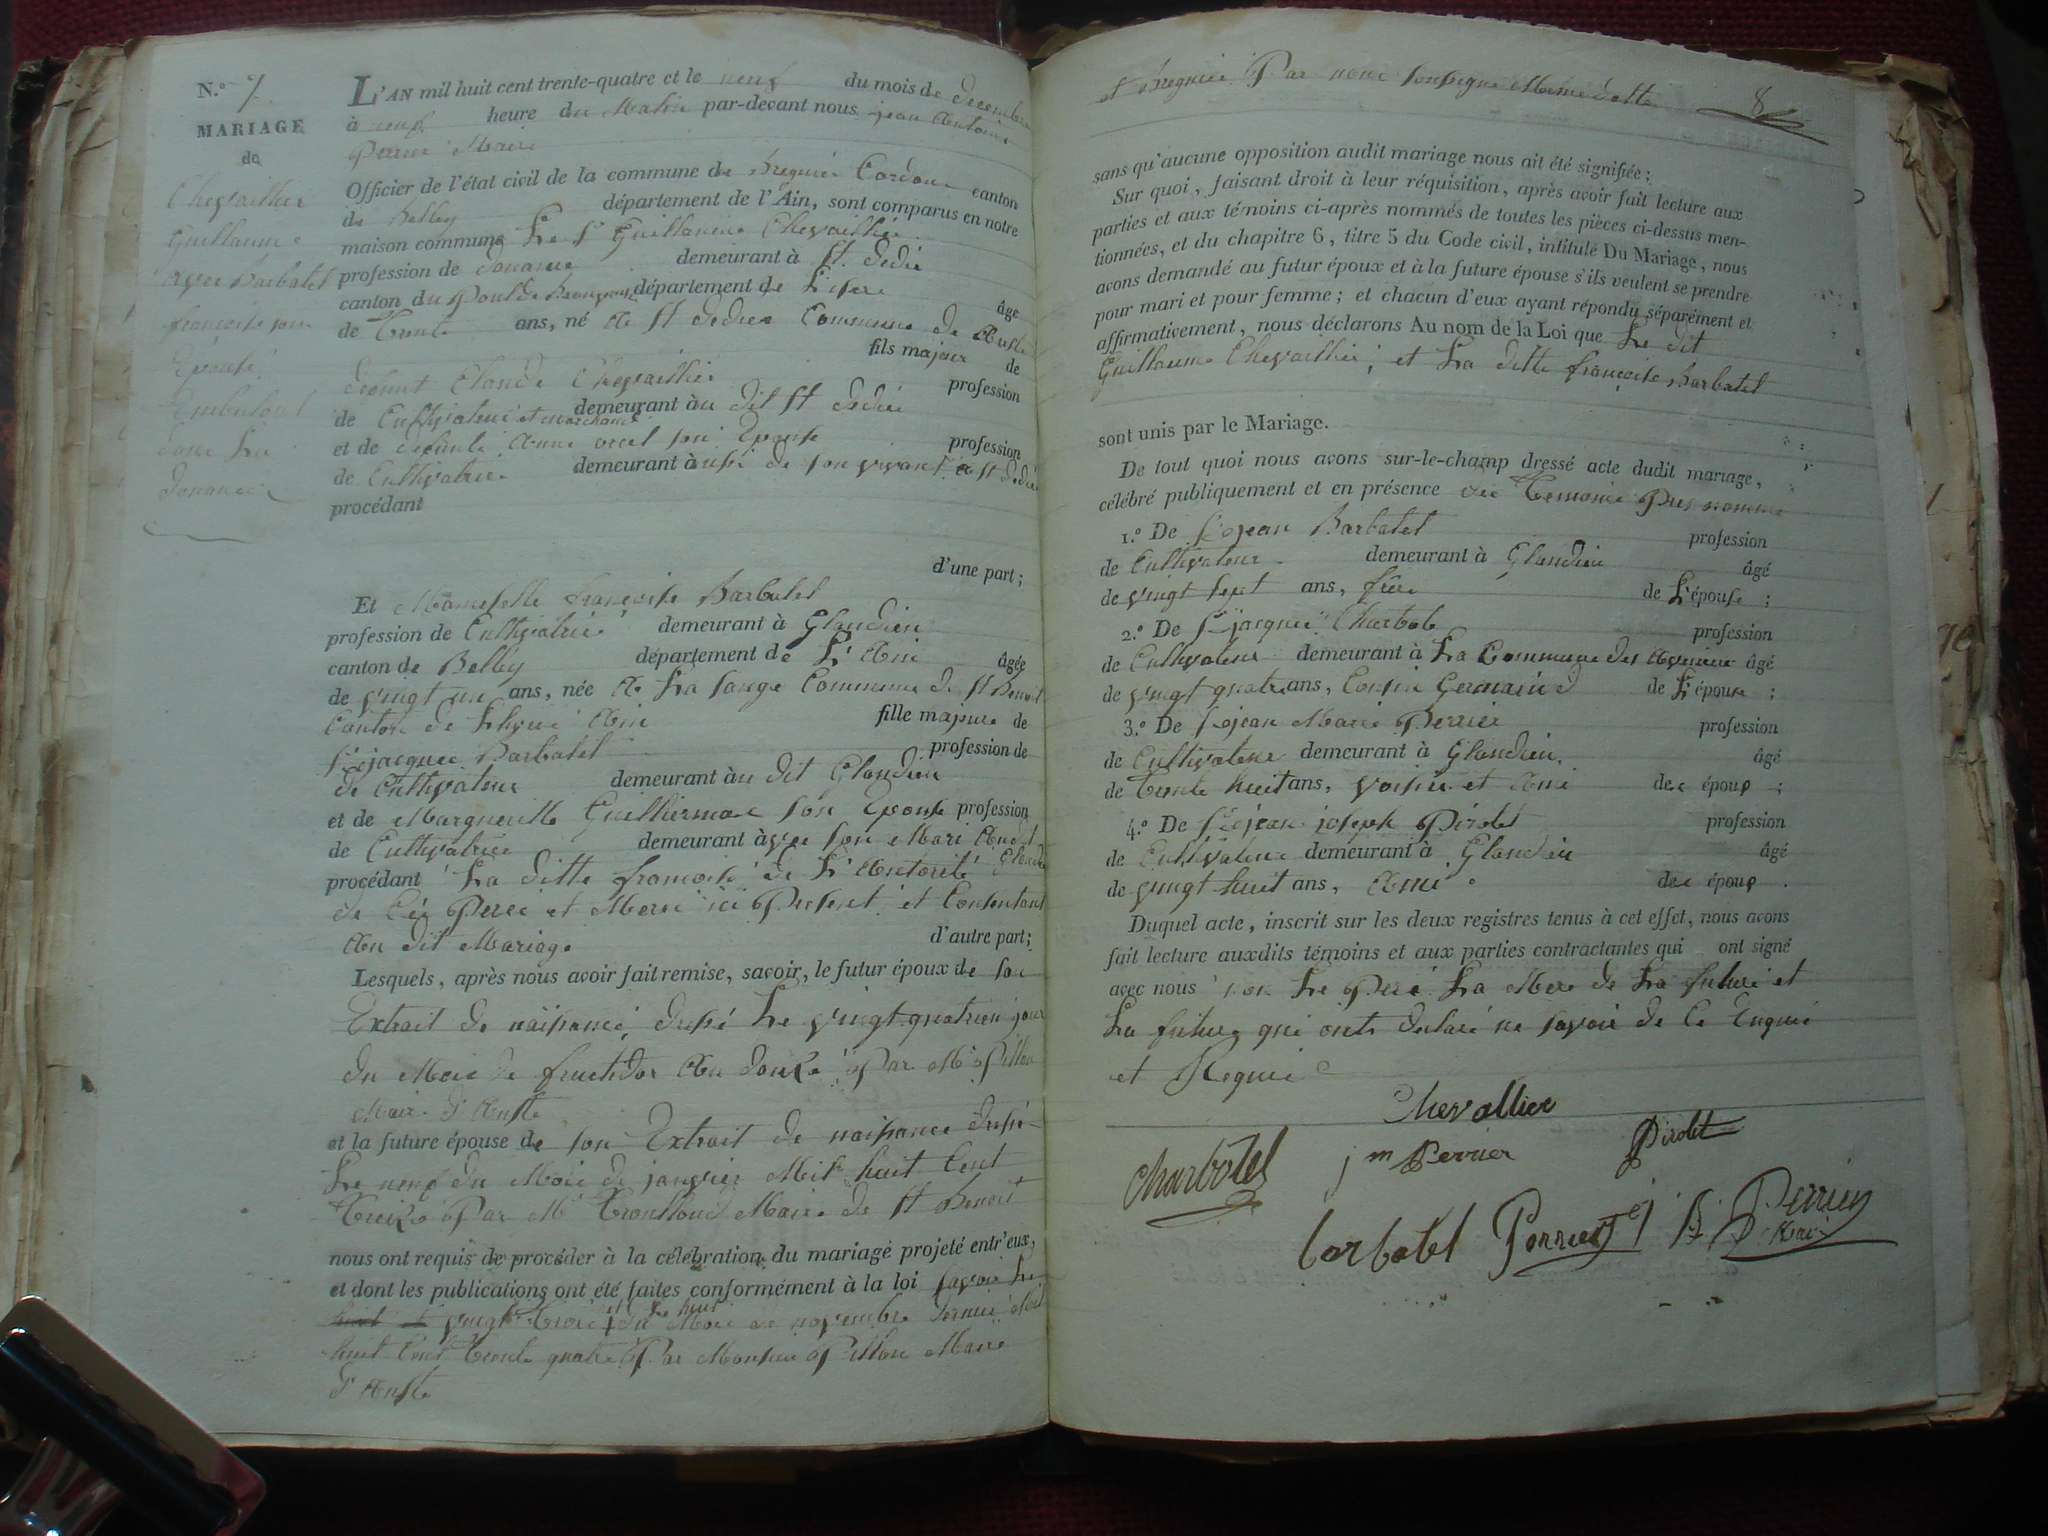 N.o 7.
MARIAGE
de
Chevaillier
Guillaume
avec Barbatel
francoise son
Epouse
L'AN mil huit cent trente-quatre et le neuf du mois de decembre
à neuf heure du Matin par-devant nous jean Antoine
Perrier Maire
Officier de l'état civil de la commune de Bregnier Cordon canton
de Belley département de l'Ain, sont comparus en notre
maison commune Le S Guillaume Chevaillier
profession de douanier demeurant à St. didier
canton du Pont de Beauvoisin département de L'isere âgé
de Trente ans, né à St didier Commune de Aoste
fils majeur de
defunt Claude Chevaillier profession
de Cultivateur et marchand demeurant àu dit St didier
et de defunte Anne son Epouse profession
de Cultivatrice demeurant àussi de son vivant à St didier
procédant
d'une part;
Et Mamoiselle francoise Barbatel
profession de Cultivatrice demeurant à Glandieu
canton de Belley département de L'Ain âgée
de vingt un ans, née à La sauge Commune de St Benoit
Canton de Lhuis Ain fille majeure de
S. jacques Barbatel profession de
de Cultivateur demeurant àu dit Glandieu
et de Margueritte Guilliermae son Epouse profession
de Cultivatrice demeurant àvec son Mari Audit
procédant La ditte francoise de L'Autorité Glandieu
de Ces Pere et Mere ici Present et Consentant
Au dit Mariage d'autre part;
Lesquels, après nous avoir fait remise, savoir, le futur époux de son
Extrait de naissance dressé Le vingt quatrieme jour
du Mois de fructidor An douze Par Mr Pillion
Maire d'Aoste
et la future épouse de son Extrait de naissance dressé
Le neuf du Mois de janvier Mil huit Cent
Treize Par Mr Trouilloud Maire de St Benoit
nous ont requis de procéder à la célébration du mariage projeté entr'eux,
et dont les publications ont été faites conformément à la loi savoir Le
vingt trois du Mois de novembre dernier Mil
huit Cent Trente quatre Par Monsieur Pillion Maire
d'Aoste
et Bregnier Par nous soussigné Meme datte 8
sans qu'aucune opposition audit mariage nous ait été signifiée;
Sur quoi, faisant droit à leur réquisition, après avoir fait lecture aux
parties et aux témoins ci-après nommés de toutes les pièces ci-dessus men-
tionnées, et du chapitre 6, titre 5 du Code civil, intitulé Du Mariage, nous
avons demandé au futur époux et à la future épouse s'ils veulent se prendre
pour mari et pour femme; et chacun d'eux ayant répondu séparément et
affirmativement, nous déclarons Au nom de la Loi que Le dit
Guillaume Chevaillier, et La ditte francoise Barbatel
sont unis par le Mariage.
De tout quoi nous avons sur-le-champ dressé acte dudit mariage,
célébré publiquement et en présence des Temoins
1.o De S. jean Barbatel profession
de Cultivateur demeurant à Glandieu âgé
de vingt sept ans, frere de L'épouse;
2.o De S. jacques Charbotel profession
de Cultivateur demeurant à La Commune des Avenieres âgé
de vingt quatre ans, Cousin Germain de L'épouse;
3.o De S. jean Marie Perrier profession
de Cultivateur demeurant à Glandieu, âgé
de Trente huit ans, voisin et Ami des époux;
4.o De S. jean joseph Pirolet profession
de Cultivateur demeurant à Glandieu âgé
de vingt huit ans, Ami des époux.
Duquel acte, inscrit sur les deux registres tenus à cet effet, nous avons
fait lecture auxdits témoins et aux parties contractantes qui ont signé
avec nous non Le Pere La Mere de La future et
La future qui ont declaré ne savoir de Ce Enquis
et Requis
Chevallier
Charbotel jm Perrier Pirolet
barbatel Perrier j A Perrier
Maire